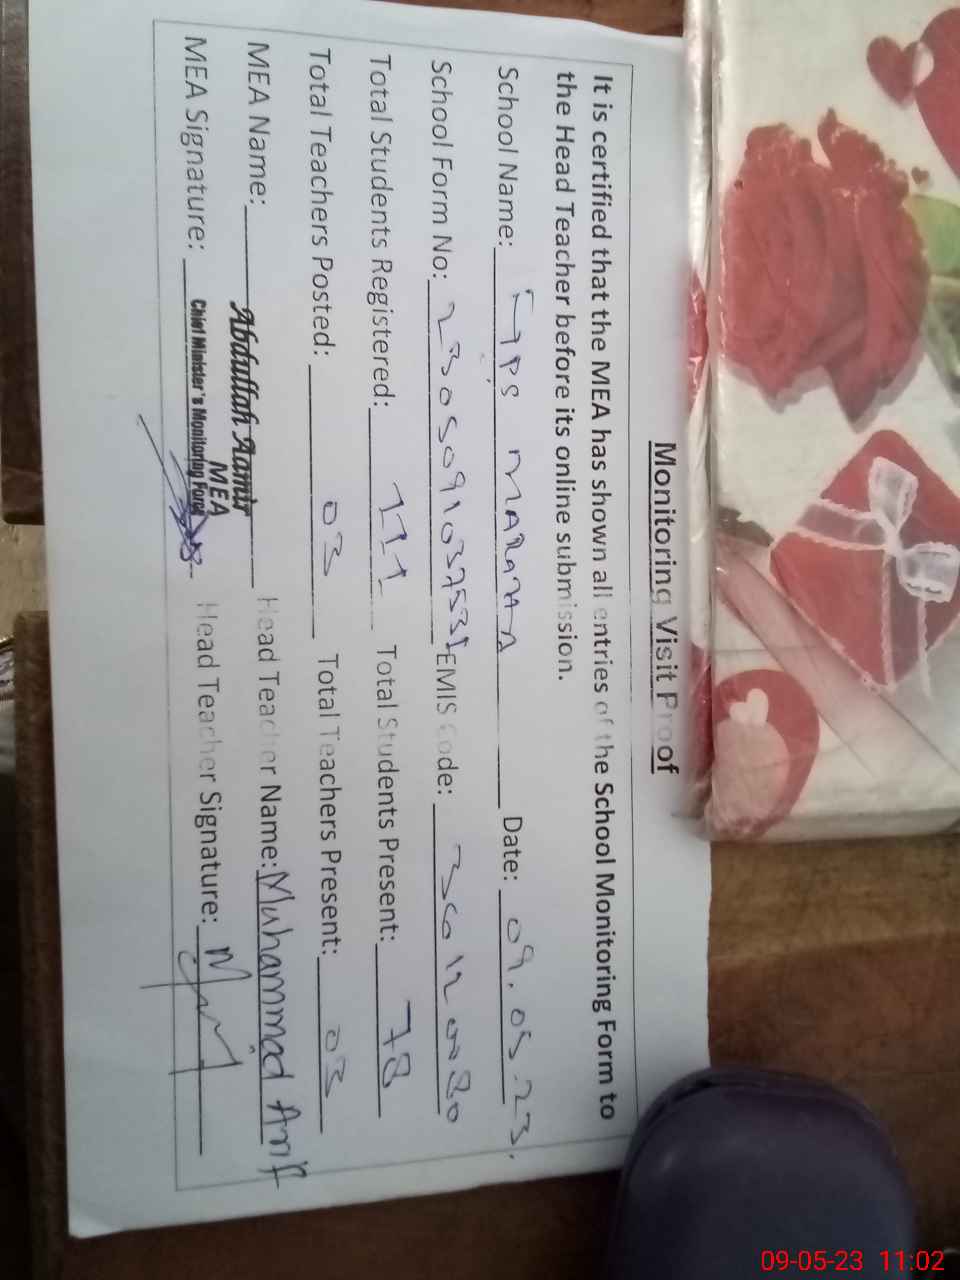 Monitoring Visit Proof
It is certified that the MEA has shown all entries of the School Monitoring Form to
the Head Teacher before its online submission.
School Name: GPS Date: 09.05.23.
School Form No: EMIS Code:
Total Students Registered: 111 Total Students Present: 78
Total Teachers Posted: 03 Total Teachers Present: 03
MEA Name: Abdullah Aamir Head Teacher Name: Muhammad Arif
MEA
MEA Signature: Chief Minister's Monitoring Force Head Teacher Signature:
09-05-23 11:02